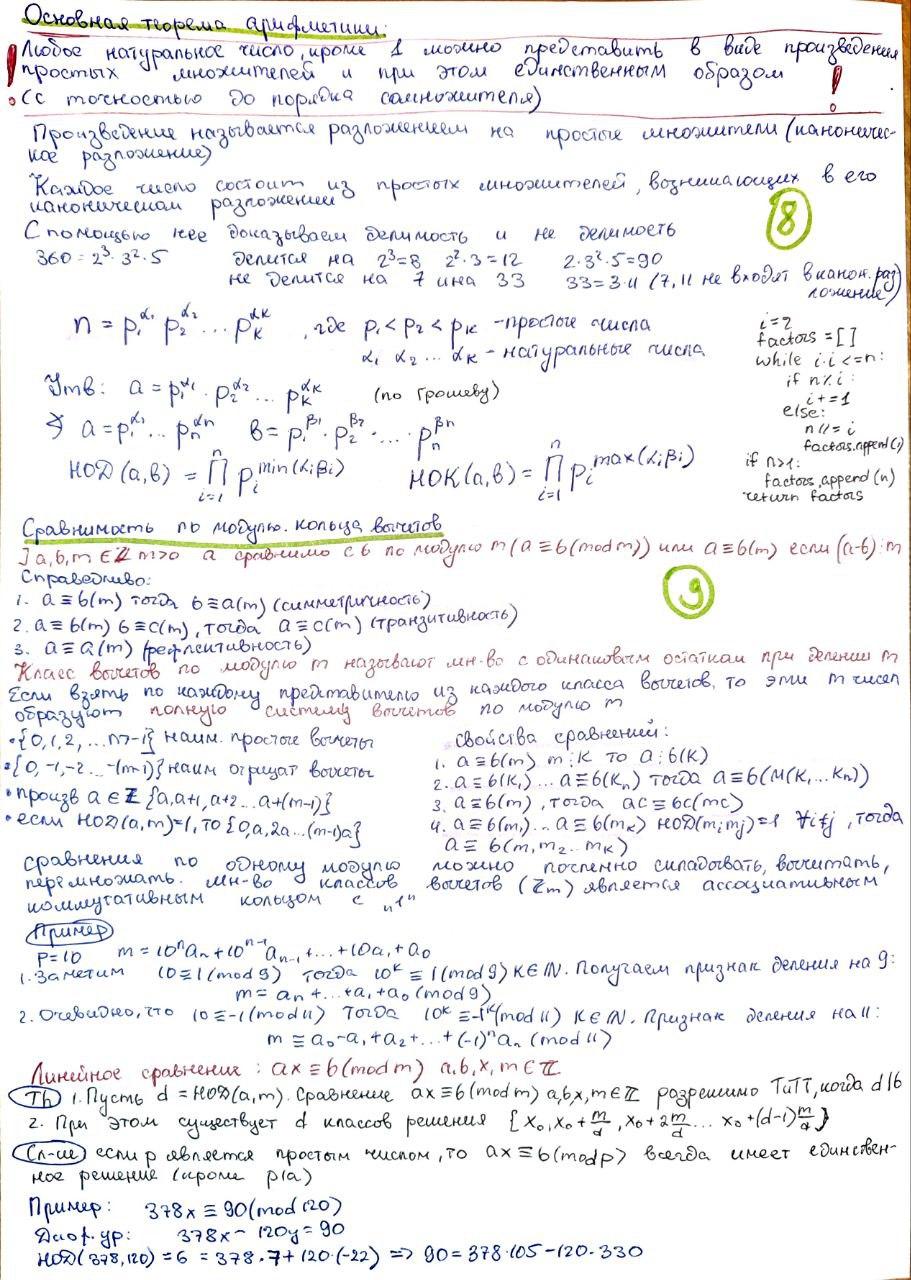 Основная теорема арифметики:
Любое натуральное число, кроме 1 можно представить в виде произведения
простых множителей и при этом единственным образом
(с точностью до порядка сомножителя)
Произведение называется разложением на простые множители (каноничес-
кое разложение)
Каждое число состоит из простых множителей, возникающих в его
каноническом разложении
С помощью нее доказываем делимость и не делимость
8
360 = 2³·3²·5 делится на 2³=8 2²·3=12 2·3²·5=90
не делится на 7 и на 33 33=3·11 (7, 11 не входят в канон. раз
ложение)
n = p₁^α₁ p₂^α₂ ... pₖ^αₖ , где p₁ < p₂ < pₖ - простые числа
α₁ α₂ ... αₖ - натуральные числа
Утв: a = p₁^α₁ · p₂^α₂ ... pₖ^αₖ (по Грошеву)
a = p₁^α₁ ... pₙ^αₙ в = p₁^β₁ · p₂^β₂ · ... · pₙ^βₙ
НОД (а,в) = ∏ᵢ₌₁ⁿ pᵢ^min(αᵢ βᵢ) НОК(а,в) = ∏ᵢ₌₁ⁿ pᵢ^max(αᵢ βᵢ)
i=2
factors = []
while i·i <= n:
if n % i:
i += 1
else:
n //= i
factors.append(i)
if n>1:
factors.append(n)
return factors
Сравнимость по модулю. кольца вычетов
] a, b, m ∈ ℤ m>0 a сравнимо с b по модулю m (a ≡ b (mod m)) или a ≡ b(m) если (a-b) ⋮ m
Справедливо:
9
1. a ≡ b(m) тогда b ≡ a(m) (симметричность)
2. a ≡ b(m) b ≡ c(m), тогда a ≡ c(m) (транзитивность)
3. a ≡ a(m) (рефлективность)
Класс вычетов по модулю m называют мн-во с одинаковым остатком при делении m
Если взять по каждому представителю из каждого класса вычетов, то эти m чисел
образуют полную систему вычетов по модулю m
• {0, 1, 2, ... m-1} наим. простые вычеты
• {0, -1, -2 ... -(m-1)} наим отрицат вычеты
• произв a ∈ ℤ {a, a+1, a+2 ... a+(m-1)}
• если НОД(a,m)=1, то {0, a, 2a ... (m-1)a}
свойства сравнений:
1. a ≡ b(m) m ⋮ k то a ⋮ b(k)
2. a ≡ b(k₁) ... a ≡ b(kₙ) тогда a ≡ b(M(k₁...kₙ))
3. a ≡ b(m), тогда ac ≡ bc(mc)
4. a ≡ b(m₁) ... a ≡ b(mₖ) НОД(mᵢ mⱼ)=1 ∀i≠j, тогда
a ≡ b(m₁ m₂ ... mₖ)
сравнения по одному модулю можно почленно складывать, вычитать,
перемножать. мн-во классов вычетов (ℤm) является ассоциативным
коммутативным кольцом с „1"
Пример
P=10 m = 10ⁿaₙ + 10ⁿ⁻¹aₙ₋₁ + ... + 10a₁ + a₀
1. Заметим 10 ≡ 1 (mod 9) тогда 10ᵏ ≡ 1 (mod 9) K ∈ ℕ. Получаем признак деления на 9:
m = aₙ + ... + a₁ + a₀ (mod 9)
2. Очевидно, что 10 ≡ -1 (mod 11) тогда 10ᵏ ≡ -1ᵏ (mod 11) K ∈ ℕ. Признак деления на 11:
m ≡ a₀ - a₁ + a₂ + ... + (-1)ⁿaₙ (mod 11)
Линейное сравнение: ax ≡ b (mod m) a, b, x, m ∈ ℤ
Th 1. Пусть d = НОД(a,m). Сравнение ax ≡ b (mod m) a, b, x, m ∈ ℤ разрешимо ТиТТ, когда d|b
2. При этом существует d классов решения {x₀, x₀+m/d, x₀+2m/d ... x₀+(d-1)m/d}
Сл-ие если p является простым числом, то ax ≡ b (mod p) всегда имеет единствен-
ное решение (кроме p|a)
Пример: 378x ≡ 90 (mod 120)
Диоф. ур: 378x - 120y = 90
НОД(378,120) = 6 = 378·7 + 120·(-22) => 90 = 378·105 - 120·330